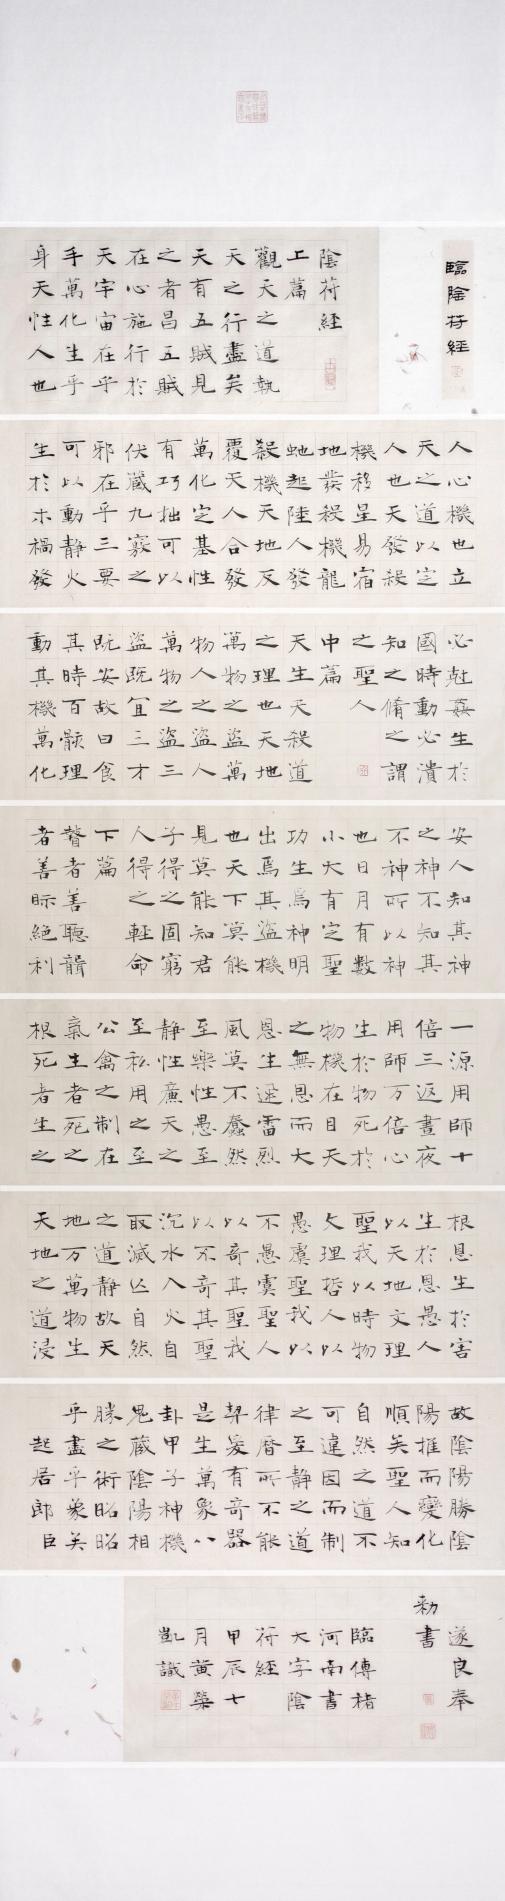 臨陰符經
陰符經
上篇
觀天之道執
天之行盡矣
天有五賊見
之者昌五賊
在心施行於
天宇宙在乎
手萬化生乎
身天性人也
人心機也立
天之道以定
人也天發殺
機移星易宿
地發殺機龍
虵起陸人發
殺機天地反
覆天人合發
萬化定基性
有巧拙可以
伏藏九竅之
邪在乎三要
可以動靜火
生於木禍發
必尅姦生於
國時動必潰
知之脩之謂
之聖人
中篇
天生天殺道
之理也天地
萬物之盜萬
物人之盜人
萬物之盜三
盜既宜三才
既安故曰食
其時百骸理
動其機萬化
安人知其神
之神不知其
不神所以神
也日月有數
小大有定聖
功生焉神明
出焉其盜機
也天下莫能
見莫能知君
子得之固窮
人得之輕命
下篇
瞽者善聽聾
者善眎絕利
一源用師十
倍三返晝夜
用師万倍心
生於物死於
物機在目天
之無恩而大
恩生迅雷烈
風莫不蠢然
至樂性愚至
靜性廉天之
至私用之至
公禽之制在
氣生者死之
根死者生之
根恩生於害
生於恩愚人
以天地文理
聖我以時物
文理哲人以
愚虞聖我以
不愚虞聖人
以奇其聖我
以不奇其聖
沉水入火自
取滅亡自然
之道靜故天
地万萬物生
天地之道浸
故陰陽勝陰
陽推而變化
順矣聖人知
自然之道不
可違因而制
之至靜之道
律曆所不能
契爰有奇器
是生萬象八
卦甲子神機
鬼藏陰陽相
勝之術昭昭
乎盡乎象矣
起居郎臣
遂良奉
勑書
臨傳褚
河南書
大字陰
符經
甲辰十
月黃榮
凱識